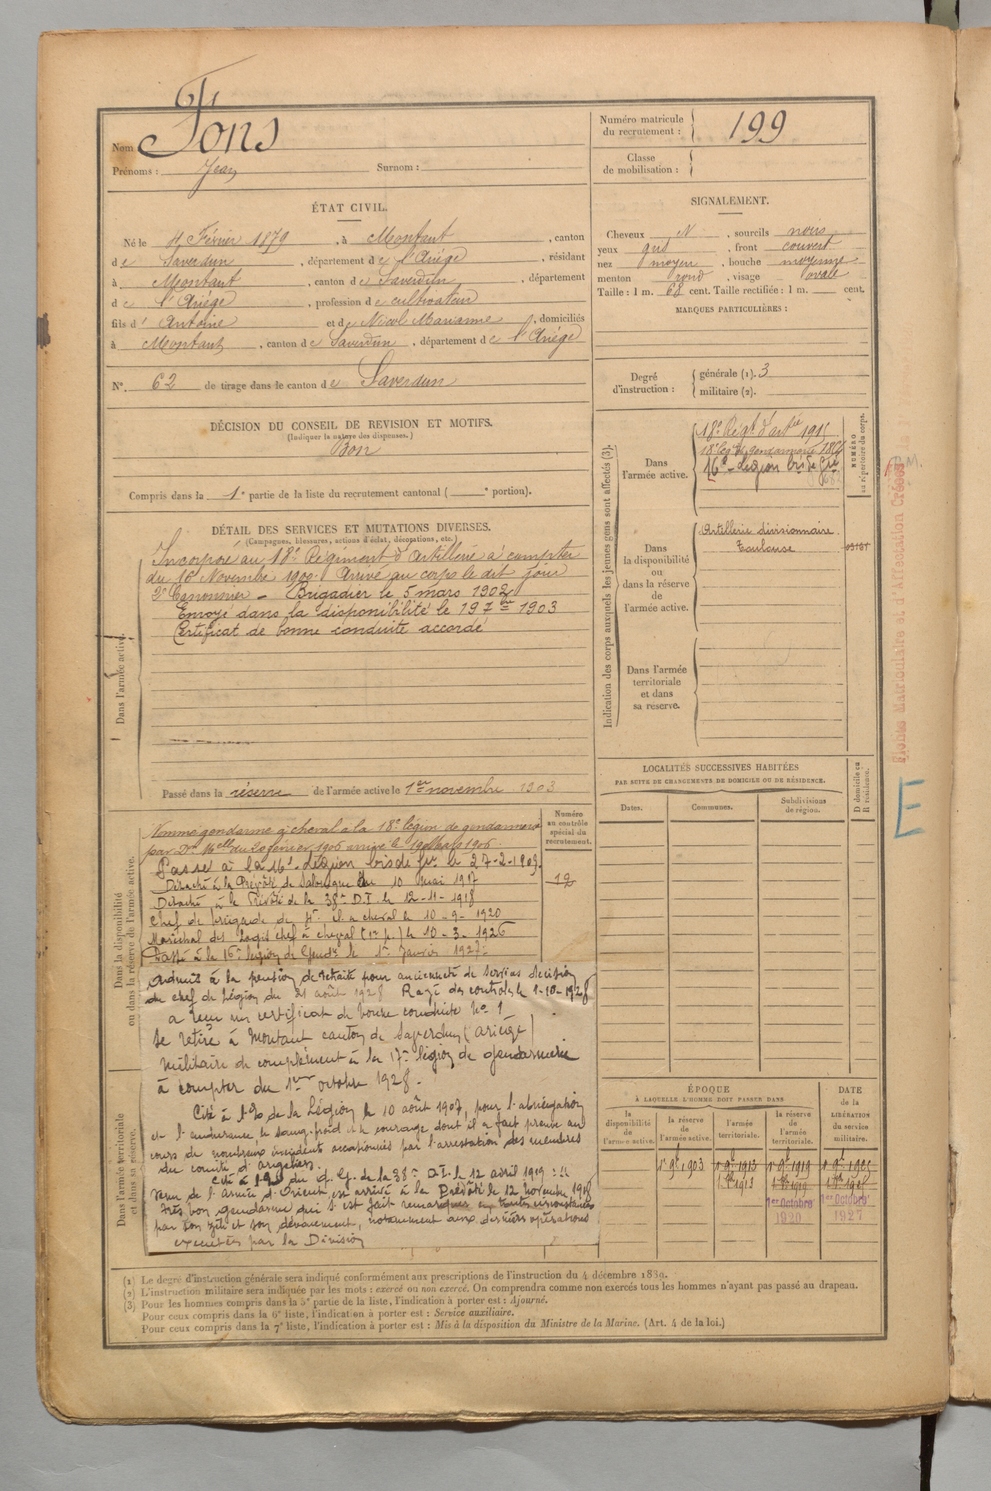 Nom Fons
Prénoms : Jean Surnom :
Numéro matricule du recrutement : 199
Classe de mobilisation :
ÉTAT CIVIL.
Né le 4 Février 1879, à Montaut, canton
de Saverdun, département de l'Ariège, résidant
à Montaut, canton de Saverdun, département
de l'Ariège, profession de cultivateur
fils d' Antoine et de Nicol Marianne, domiciliés
à Montaut, canton de Saverdun, département de l'Ariège
N° 62 de tirage dans le canton de Saverdun
SIGNALEMENT.
Cheveux N, sourcils noirs
yeux gris, front couvert
nez moyen, bouche moyenne
menton rond, visage ovale
Taille : 1 m. 68 cent. Taille rectifiée : 1 m. cent.
MARQUES PARTICULIÈRES :
Degré d'instruction : générale (1). 3
militaire (2).
DÉCISION DU CONSEIL DE REVISION ET MOTIFS.
(Indiquer la nature des dispenses.)
Bon
Compris dans la 1e partie de la liste du recrutement cantonal ( e portion).
DÉTAIL DES SERVICES ET MUTATIONS DIVERSES.
(Campagnes, blessures, actions d'éclat, décorations, etc.)
Dans l'armée active.
Incorporé au 18e Régiment d'Artillerie à compter
du 16 Novembre 1900. Arrivé au corps le dit jour
2e Canonnier - Brigadier le 5 mars 1902
Envoyé dans la disponibilité le 19 7bre 1903
Certificat de bonne conduite accordé
Passé dans la réserve de l'armée active le 1er novembre 1903
Indication des corps auxquels les jeunes gens sont affectés (3).
Dans l'armée active.
18e Régt d'artie
18e leg. de gendarmerie
16e Légion bis de Gie
NUMÉRO au répertoire du corps.
Dans la disponibilité ou dans la réserve de l'armée active.
Artillerie divisionnaire
Toulouse
Dans l'armée territoriale et dans sa réserve.
Fiches Matriculaire et d'Affectation Créées
E
LOCALITÉS SUCCESSIVES HABITÉES
PAR SUITE DE CHANGEMENTS DE DOMICILE OU DE RÉSIDENCE.
Dates. Communes. Subdivisions de région. D domicile ou R résidence.
Dans la disponibilité ou dans la réserve de l'armée active.
Numéro au contrôle spécial du recrutement.
12
Nommé gendarme à cheval à la 18e légion de gendarmerie
par Don Melle du 20 février 1906 arrivé le 19 Mars 1906
Passé à la 16e Légion bis de Gie le 27-2-1909
Détaché à la Prévôté de Salonique le 10 mai 1917
Détaché à la Prévôté de la 38e D.I. le 12-11-1918
Chef de brigade de 4e cl. à cheval le 10-9-1920
Maréchal des Logis chef à cheval le 10-3-1926
Passé à la 16e légion de Gendie le 1er Janvier 1927
Admis à la pension de retraite pour ancienneté de services décision
du chef de Légion du 21 août 1928 Rayé des contrôles le 1-10-1928
a reçu un certificat de bonne conduite No 1
Se retire à Montaut canton de Saverdun (Ariège)
Militaire de complément à la 17e légion de gendarmerie
à compter du 1er octobre 1928.
Dans l'armée territoriale et dans sa réserve.
Cité à l'O de la Légion le 10 août 1907, pour l'abnégation
et l'endurance le sang-froid et le courage dont il a fait preuve au
cours de nombreux incidents occasionnés par l'arrestation des membres
du comité d'argeliers.
Cité à l'O du Q.G. de la 38e D.I. le 12 avril 1919 :
Venu de l'armée d'Orient est arrivé à la Prévôté le 12 novembre 1918
Très bon gendarme qui s'est fait remarquer en toutes circonstances
par son zèle et son dévouement, notamment aux dernières opérations
exécutées par la Division
ÉPOQUE
À LAQUELLE L'HOMME DOIT PASSER DANS
la disponibilité de l'armée active. la réserve de l'armée active. l'armée territoriale. la réserve de l'armée territoriale.
DATE de la LIBÉRATION du service militaire.
1er 9bre 1903 1er 9bre 1913 1er 9bre 1919 1er 9bre 1925
1er Octobre 1920 1er Octobre 1927
(1) Le degré d'instruction générale sera indiqué conformément aux prescriptions de l'instruction du 4 décembre 1889.
(2) L'instruction militaire sera indiquée par les mots : exercé ou non exercé. On comprendra comme non exercés tous les hommes n'ayant pas passé au drapeau.
(3) Pour les hommes compris dans la 5e partie de la liste, l'indication à porter est : Ajourné.
Pour ceux compris dans la 6e liste, l'indication à porter est : Service auxiliaire.
Pour ceux compris dans la 7e liste, l'indication à porter est : Mis à la disposition du Ministre de la Marine. (Art. 4 de la loi.)